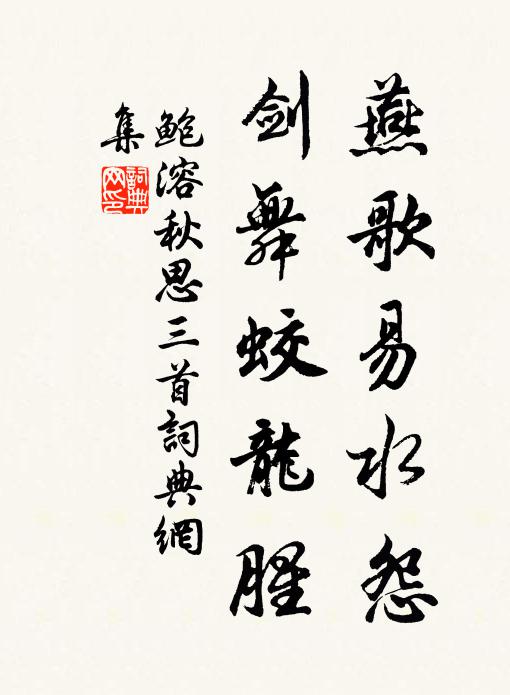 燕歌易水怨
劍舞蛟龍腥
鮑溶秋思三首詞典網
集
詞典
网印